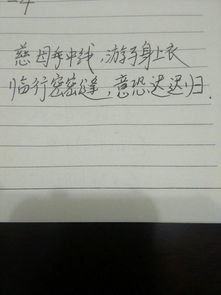 慈母手中线,游子身上衣
临行密密缝,意恐迟迟归.